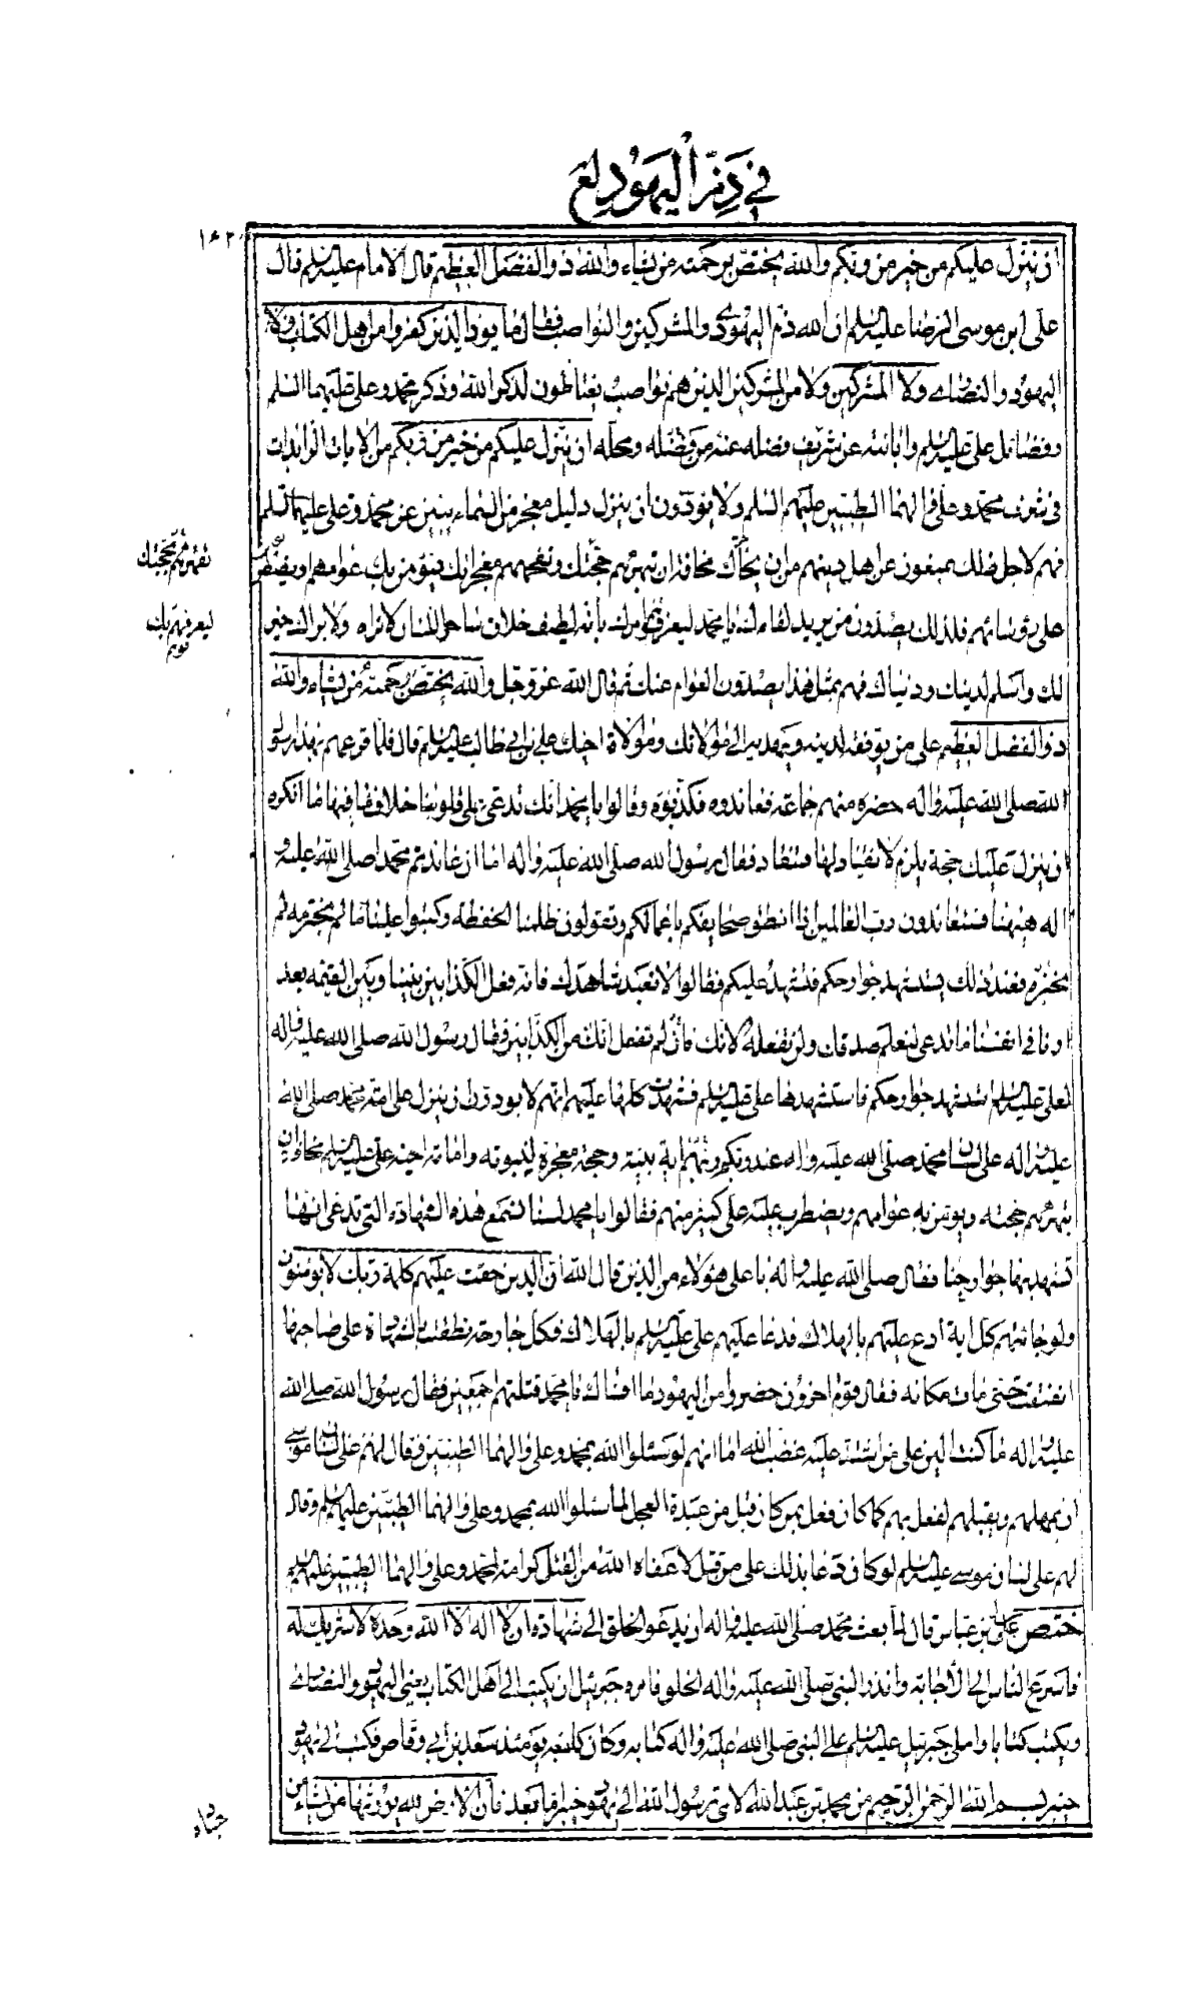 في ذمّ اليهود لع
۱۶۲
ان ينزل عليكم من خير من ربكم والله يختص برحمته من يشاء والله ذو الفضل العظيم قال الامام عليه السلم قال
على ابن موسى الرضا عليه السلم ان الله ذم اليهود والمشركين والنواصب فقال ما يود الذين كفروا من اهل الكتاب ولا
اليهود والنصارى ولا المشركين ولا من المشركين الذين هم نواصب يغتاظون لذكر الله وذكر محمد وعلى عليهما السلم
وفضائل على عليه السلم وابانته عن شريف فضله عنه من فضله ومحله ان ينزل عليكم من خير من ربكم من الايات الزائدات
في شرف محمد وعلى والهما الطيبين عليهم السلم ولا يودون ان ينزل دليل معجز من السماء يبين عن محمد وعلى عليهما السلم
فهم لاجل ذلك يمنعون عن اهل دينهم من ان يحاجك مخافة ان تبهرهم حجتك وتفحمهم معجزاتك فيؤمن بك عوامهم ويضطربون
تقهرهم حجتك
على رؤسائهم فلذلك يصدون من يريد لقاءك يا محمد ليعرف امرك بانه لطيف خلاق ساحر اللسان لا تراه ولا يراك خير
ليعرفهم بك
لك واسلم لدينك ودنياك فهم بمثل هذا يصدون العوام عنك ثم قال الله عز وجل والله يختص برحمته من يشاء والله
ذو الفضل العظيم على من يوفقه لدينه ويهديه الى موالاتك وموالاة اخيك على بن ابى طالب عليه السلم قال فلما قرعهم بهذا رسو
الله صلى الله عليه واله حضره منهم جماعة فعاندوه فكذبوه وقالوا يا محمد انك تدعى على قلوبنا خلاف ما فيها ما نكره
ان ينزل عليك حجة يلزم الانقياد لها فننقاد فقال رسول الله صلى الله عليه واله اما ان عاندتم محمدا صلى الله عليه و
اله هيهنا فستعاندون رب العالمين اذا انطق صحايفكم باعمالكم وتقولون ظلمنا الحفظة وكتبوا علينا ما لم نجترمه ثم
فعند ذلك يستشهد جوارحكم فتشهد عليكم فقالوا لا تبعد شاهدك فانه فعل الكذابين بيننا وبين القيمة بعد
ارنا في انفسنا ما تدعى لنعلم صدقك ولن تفعله لانك فان لم تفعل انك من الكذابين فقال رسول الله صلى الله عليه واله
لعلى عليه السلم استشهد جوارحكم فاستشهدها على عليه السلم فشهدت كلها عليهم انهم لا يودون ان ينزل على امة محمد صلى الله
عليه واله على لسان محمد صلى الله عليه واله عند ربكم اية بينة وحجة معجزة لنبوته وامامة اخيه على عليه السلم مخافة ان
تبهرهم حجته ويؤمن به عوامهم ويضطرب عليه على كثير منهم فقالوا يا محمد لسنا نسمع هذه الشهادة التي تدعى انها
تشهد بها جوارحنا فقال صلى الله عليه واله يا على هؤلاء من الذين قال الله ان الذين حقت عليهم كلمة ربك لا يؤمنون
ولو جاءتهم كل اية ادع عليهم بالهلاك فدعا عليهم على عليه السلم بالهلاك فكل جارحة نطقت بالشهادة على صاحبها
انفتقت حتى مات مكانه فقال قوم اخرون حضروا من اليهود ما اقساك يا محمد قتلتهم اجمعين فقال رسول الله صلى الله
عليه واله ما كنت الين على من اشتد عليه غضب الله اما انهم لو سئلوا الله بمحمد وعلى والهما الطيبين فقال لهم على لسان موسى
ان يمهلهم ويقيلهم لفعل بهم كما كان فعل بمن كان قبل من عبدة العجل لما سئلوا الله بمحمد وعلى والهما الطيبين عليهم السلم وقال
لهم على لسان موسى عليه السلم لو كان دعا بذلك على من قتل لاعفاه الله من القتل كرامة لمحمد وعلى والهما الطيبين عليهم السلم
ختص عن ابن عباس قال لما بعث محمد صلى الله عليه واله ان يدعو الخلق الى شهادة ان لا اله الا الله وحده لا شريك له
فاسرع الناس الى الاجابة وانذر النبى صلى الله عليه واله الخلق فامره جبرئيل ان يكتب الى اهل الكتاب يعنى اليهود والنصارى
ويكتب كتابا واملى جبرئيل عليه السلم على النبى صلى الله عليه واله كتابه وكان كاتبه يومئذ سعد بن ابى وقاص فكتب الى يهود
خيبر بسم الله الرحمن الرحيم من محمد بن عبد الله الامى رسول الله الى يهود خيبر اما بعد فان الارض لله يورثها من يشاء من
عباده